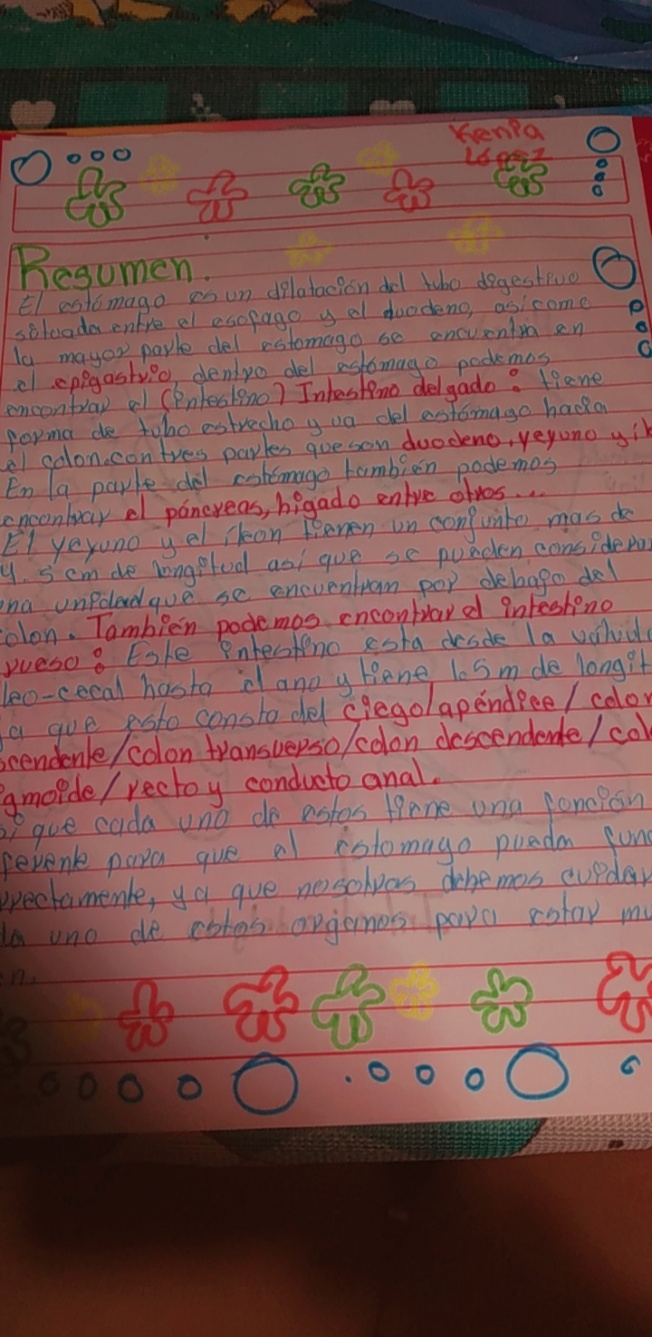 Kenia
López
Resumen.
El estómago es un dilatación del tubo digestivo
situada entre el esofago y el duodeno, asi como
la mayor parte del estomago se encuentra en
el epigastrio, dentro del estómago podemos
encontrar el (intestino) Intestino delgado: tiene
forma de tubo estrecho y va del estómago hacia
el colon.con tres partes que son duodeno, yeyuno y il
En la parte del estómago también podemos
encontrar el páncreas, hígado entre otros...
El yeyuno y el íleon tienen un conjunto mas de
4.5 cm de longitud asi que se pueden considera
na unidad que se encuentran por debajo del
olon. También podemos encontrar el intestino
rueso: Este intestino esta desde la valvula
leo-cecal hasta el ano y tiene 1.5 m de longit
a que esto consta del ciego/apéndice/colon
scendente/colon transverso/colon descendente/col
gmoide/recto y conducto anal.
que cada uno de estos tiene una función
ferente para que el estomago pueda func
rrectamente, ya que nosotros debemos cuidar
da uno de estos organos para estar mu
en.